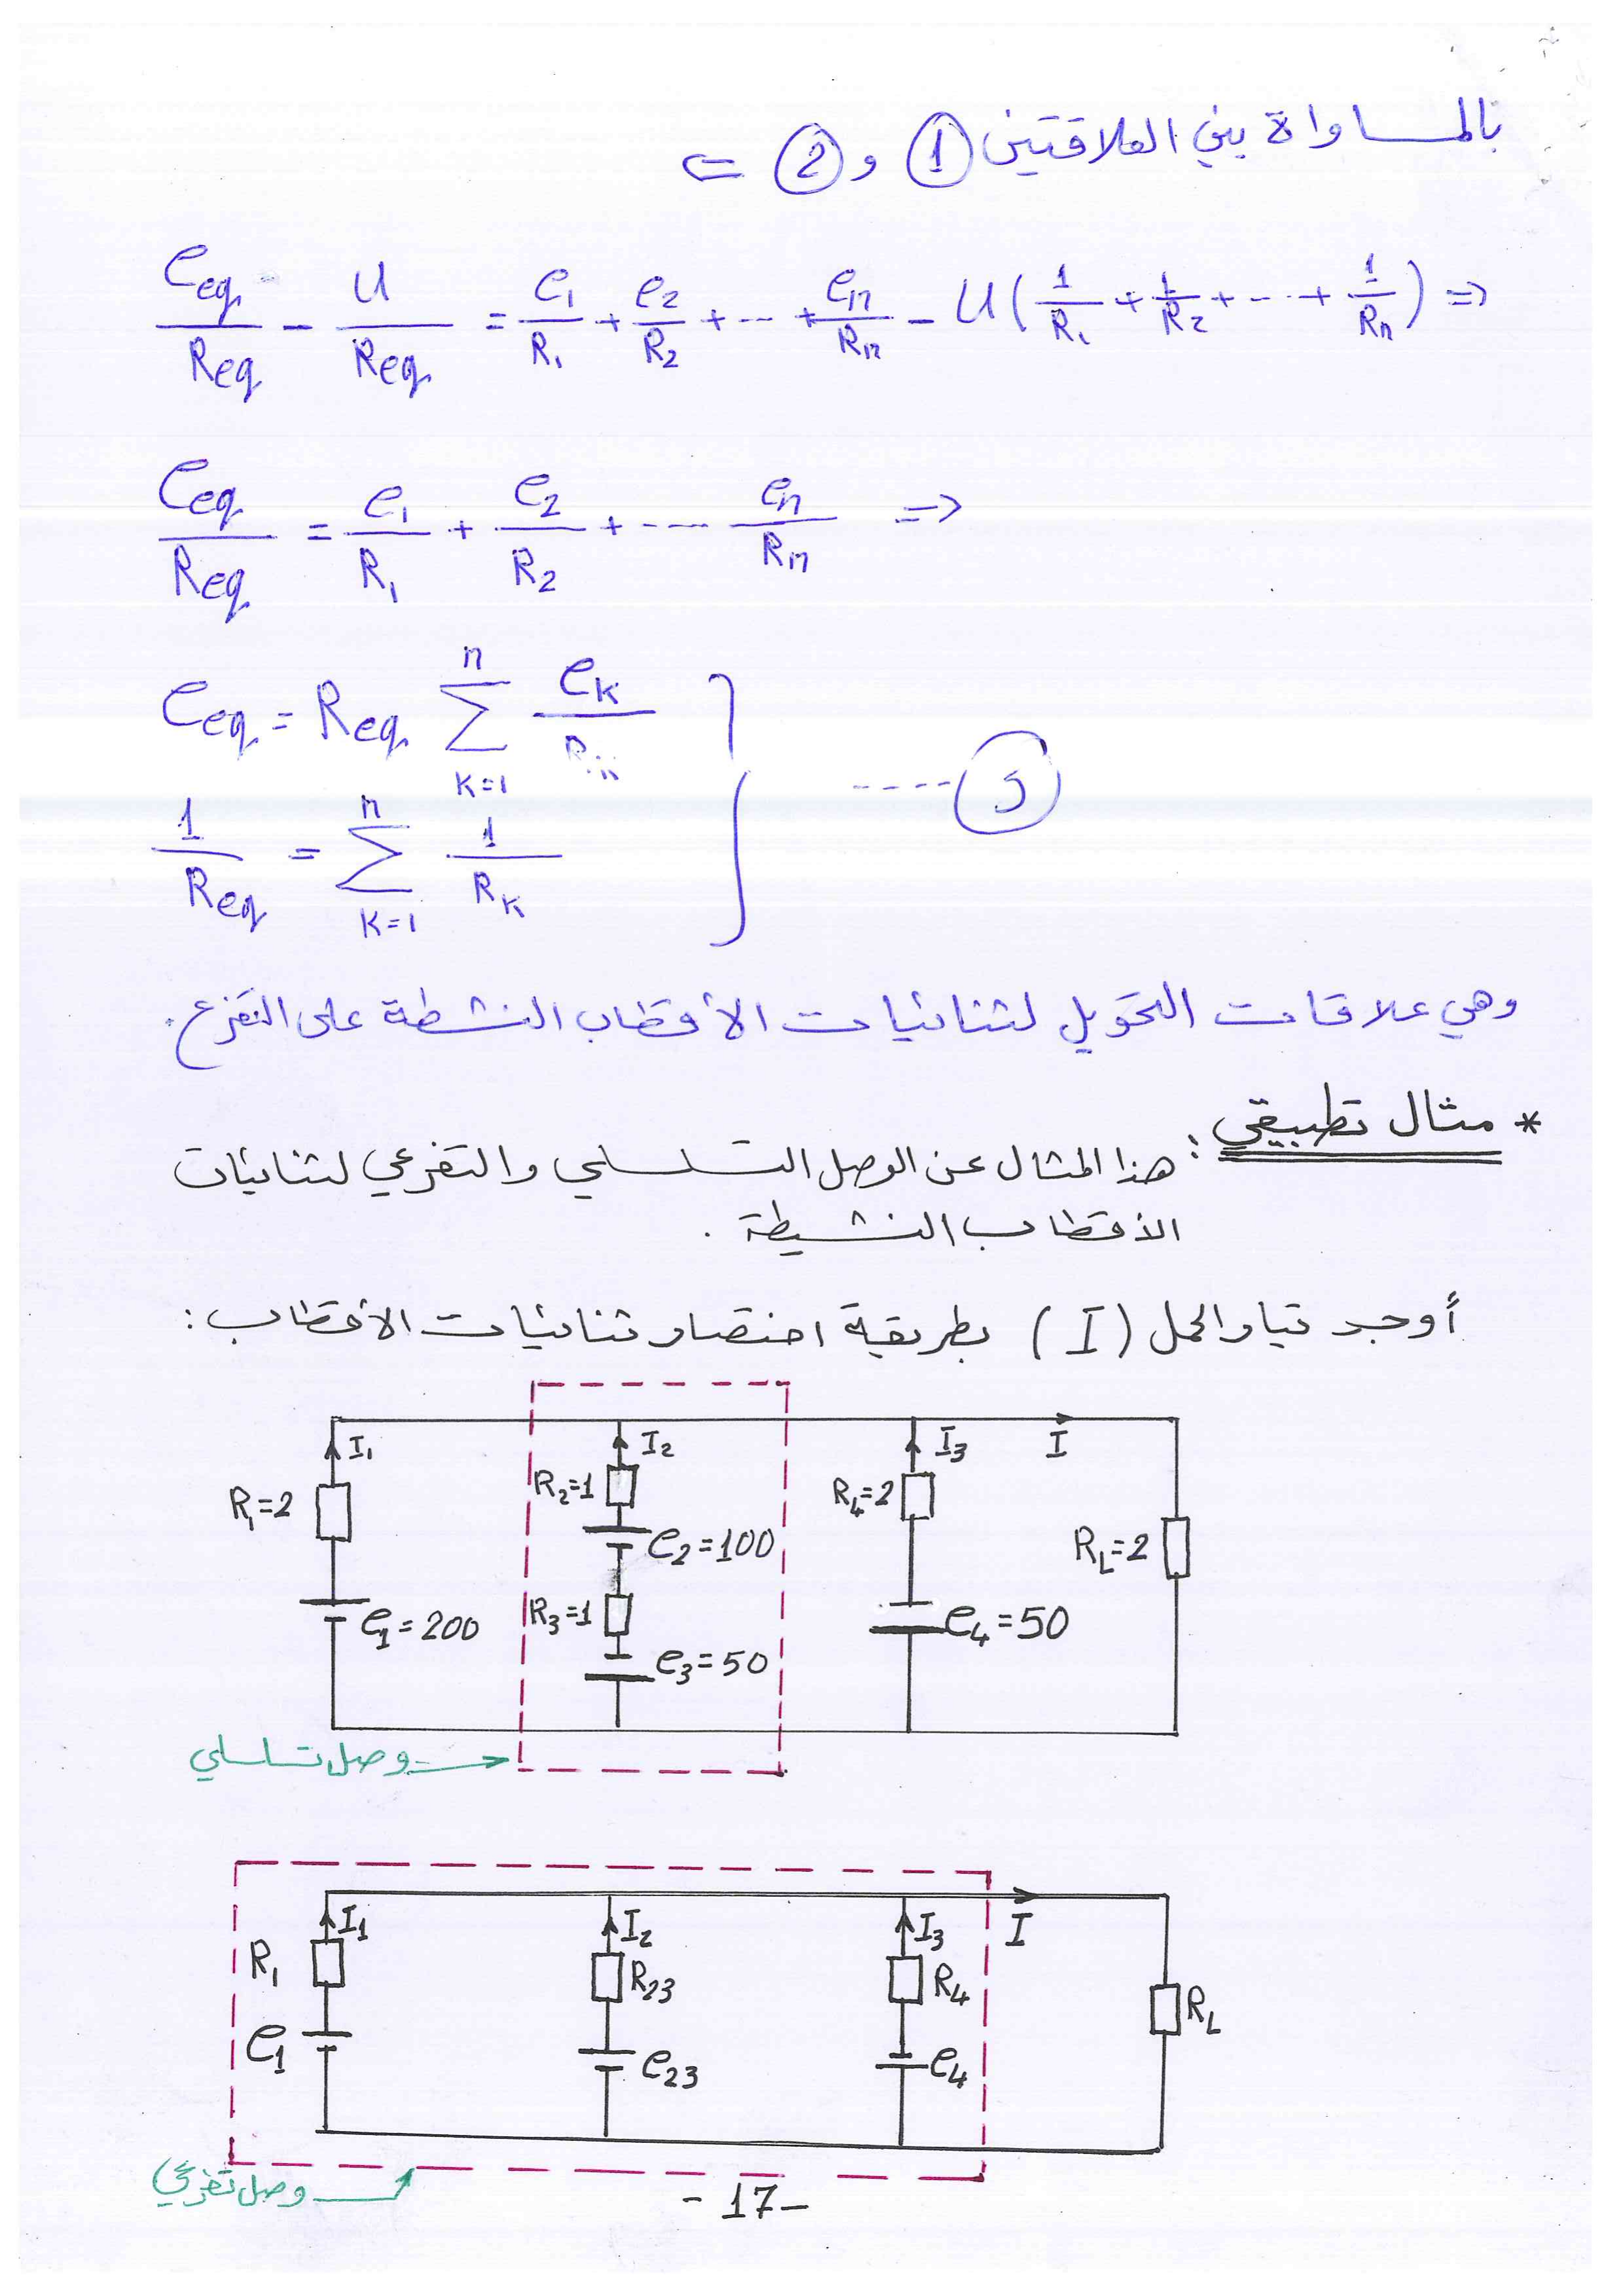 بالمساواة بين العلاقتين ① و ② ⇐
e_eq/R_eq - U/R_eq = e₁/R₁ + e₂/R₂ + ... + eₙ/Rₙ - U(1/R₁ + 1/R₂ + ... + 1/Rₙ) ⇒
e_eq/R_eq = e₁/R₁ + e₂/R₂ + .... eₙ/Rₙ ⇒
e_eq = R_eq ∑_{k=1}^{n} e_k/
1/R_eq = ∑_{k=1}^{n} 1/R_k
وهي علاقات التحويل لثنائيات الأقطاب النشطة على التفرع.
* مثال تطبيقي:
هذا المثال عن الوصل التسلسلي والتفرعي لثنائيات
الأقطاب النشيطة.
أوجد تيار الحمل (I) بطريقة اختصار ثنائيات الأقطاب:
I₁ I₂ I₃ I
R₁=2 R₂=1 R₄=2
e₂=100 R_L=2
e₁=200 R₃=1 e₄=50
e₃=50
وصل تسلسلي
I₁ I₂ I₃ I
R₁ R₂₃ R₄ R_L
e₁ e₂₃ e₄
وصل تفرعي
-17-